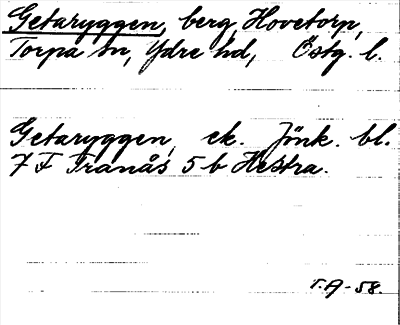 Getaryggen, berg, Hovetorp,
Torpa sn, Ydre hd, Östg. l.
Getaryggen, ek. Jönk. bl.
7 F Tranås 5 b Hestra.
T.A-58.